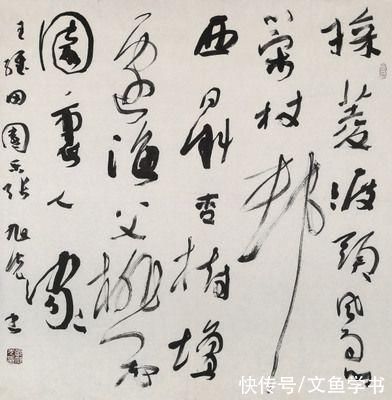 採菱渡頭風急
策杖林
西日斜杏樹壇
邊漁父桃花
園裏人家
王維田園樂張旭光書
快传号/文鱼学书